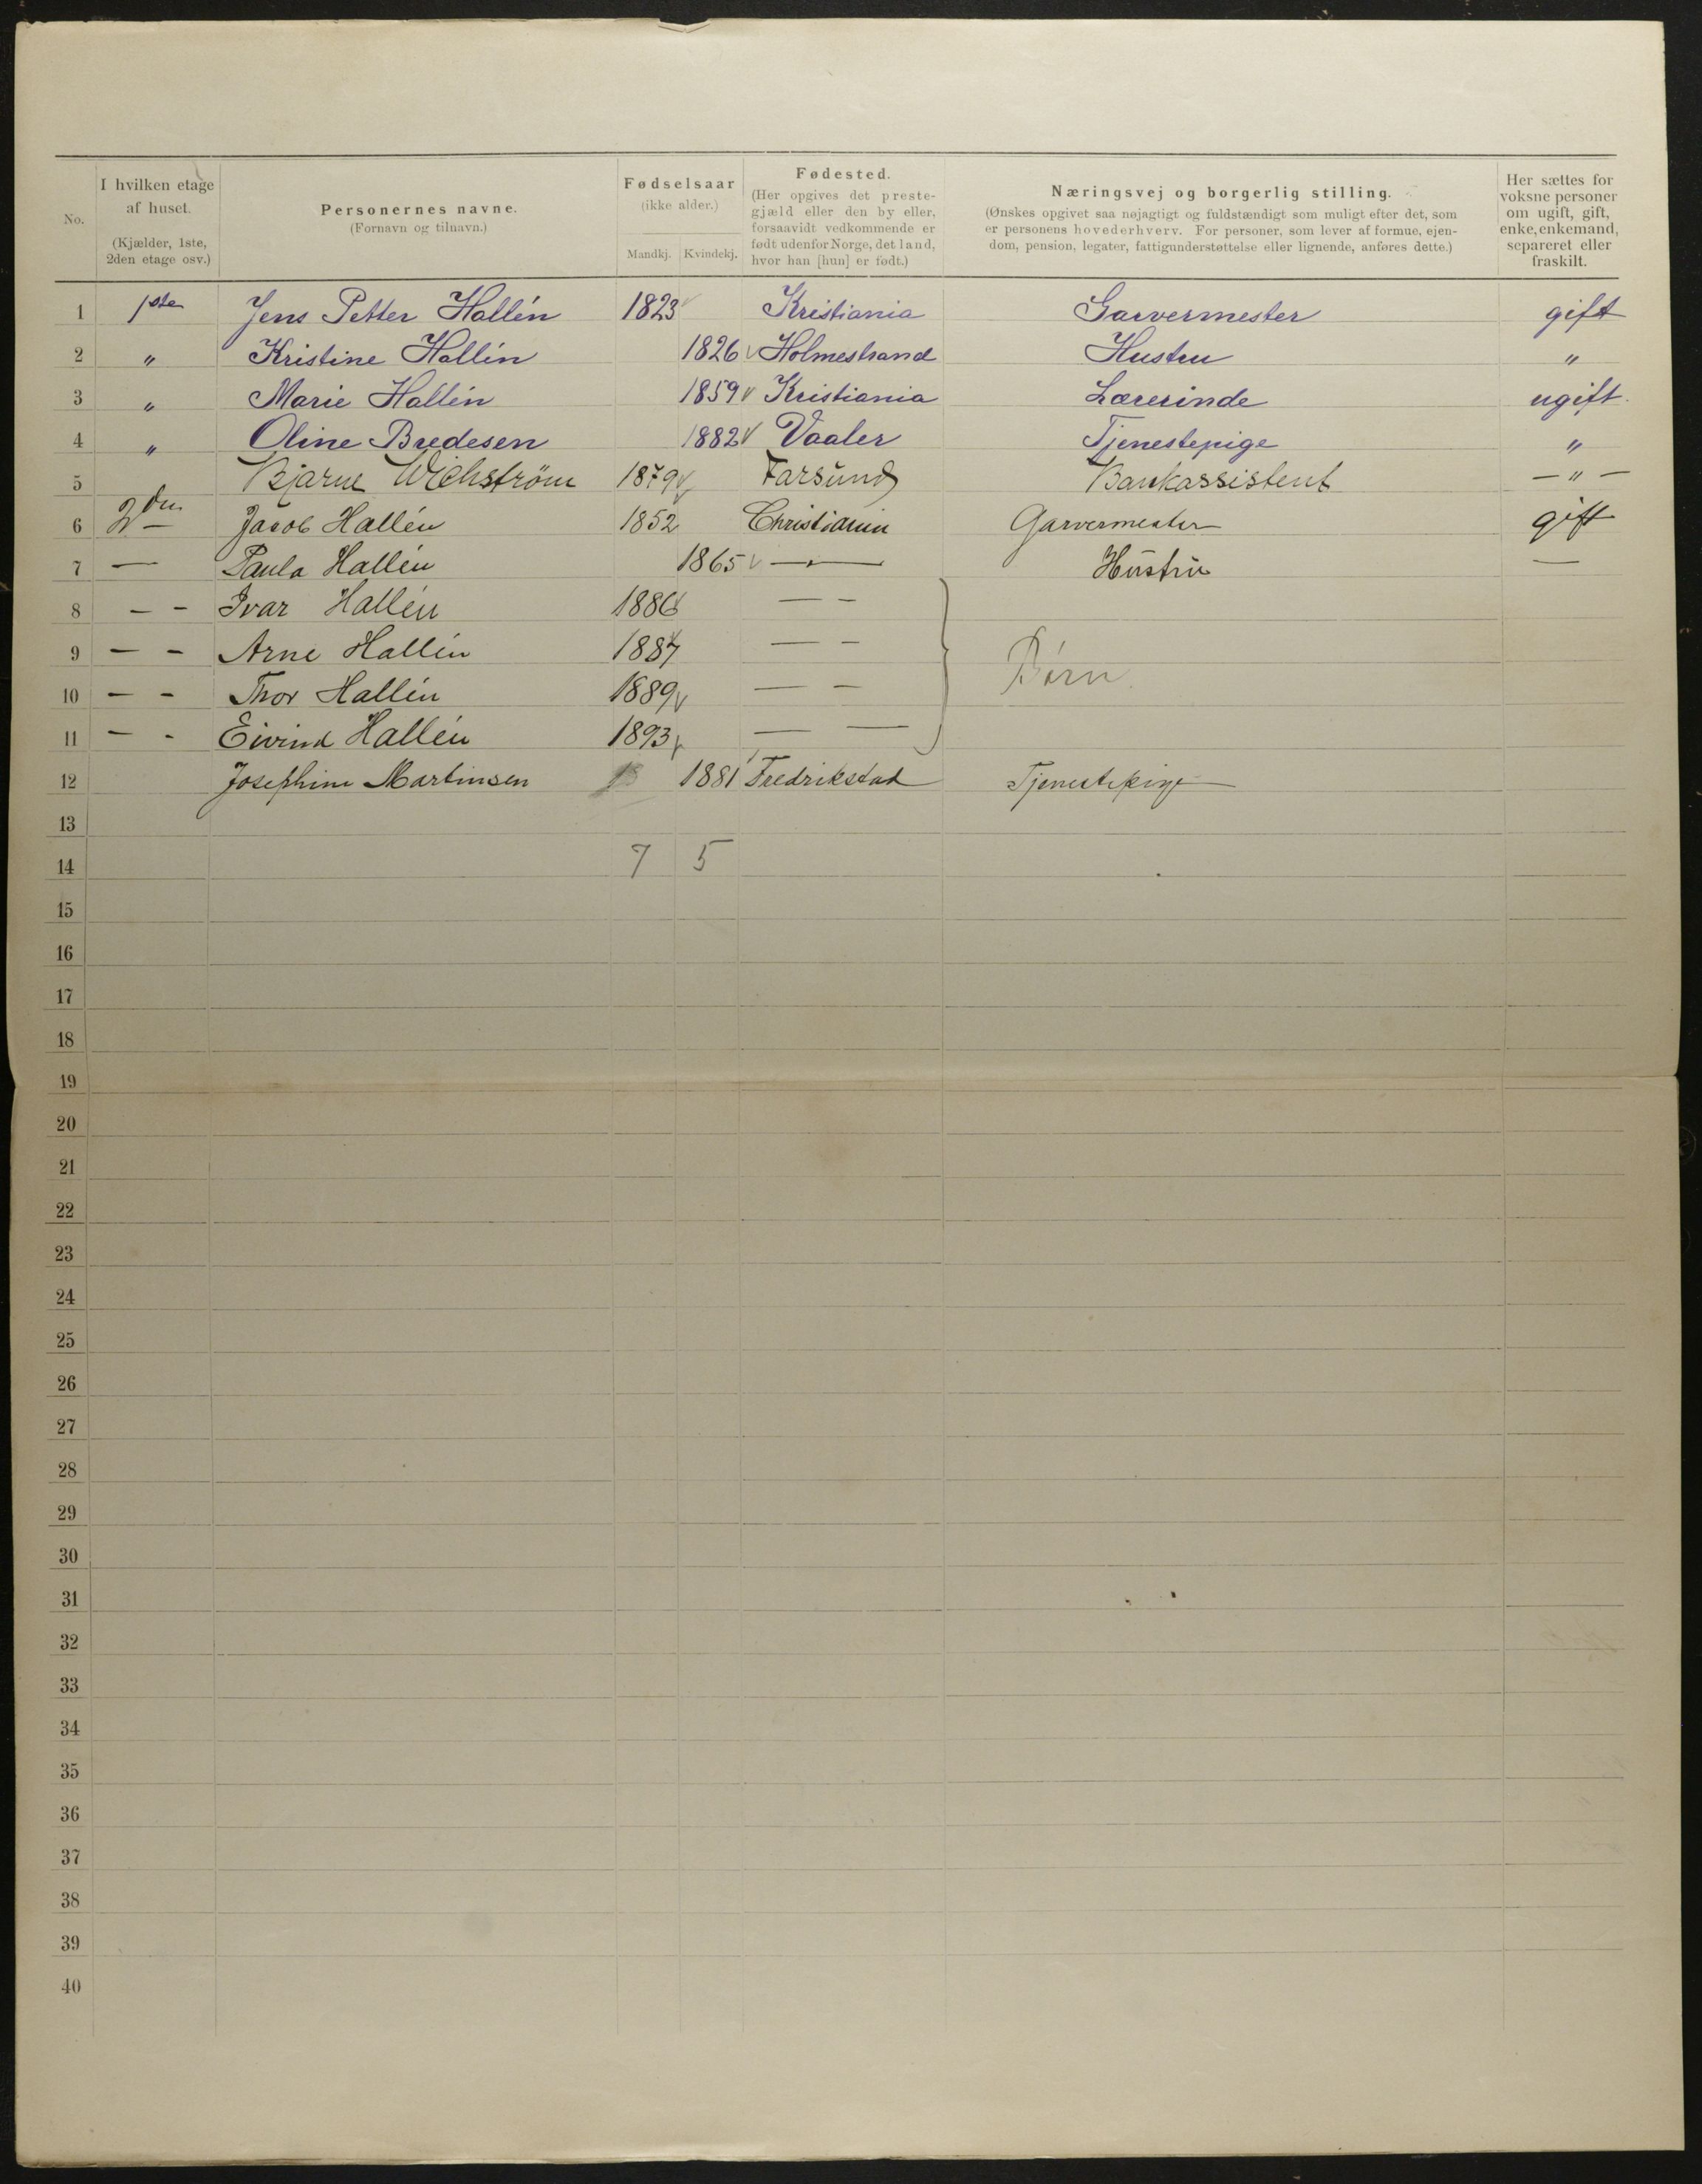 No. I hvilken etage af huset. (Kjælder, 1ste, 2den etage osv.) Personernes navne. (Fornavn og tilnavn.) Fødselsaar (ikke alder.) Mandkj. Kvindekj. Fødested. (Her opgives det prestegjæld eller den by eller, forsaavidt vedkommende er født udenfor Norge, det land, hvor han [hun] er født.) Næringsvej og borgerlig stilling. (Ønskes opgivet saa nøjagtigt og fuldstændigt som muligt efter det, som er personens hovederhverv. For personer, som lever af formue, ejendom, pension, legater, fattigunderstøttelse eller lignende, anføres dette.) Her sættes for voksne personer om ugift, gift, enke, enkemand, separeret eller fraskilt.
1 1ste Jens Petter Hallén 1823 Kristiania Garvermester gift
2 " Kristine Hallén 1826 Holmestrand Hustru "
3 " Marie Hallén 1859 Kristiania Lærerinde ugift
4 " Oline Bredesen 1882 Vaaler Tjenestepige "
5 Bjarne Wichstrøm 1879 Farsund Bankassistent — " —
6 2den Jacob Hallén 1852 Christiania Garvermester gift
7 — Paula Hallén 1865 — " — Hustru —
8 — — Ivar Hallén 1886 — —
9 — — Arne Hallén 1887 — — Børn
10 — — Thor Hallén 1889 — —
11 — - Eivind Hallén 1893 — —
12 Josephine Martinsen 18 1881 Fredrikstad Tjenestepige
13
14 7 5
15
16
17
18
19
20
21
22
23
24
25
26
27
28
29
30
31
32
33
34
35
36
37
38
39
40